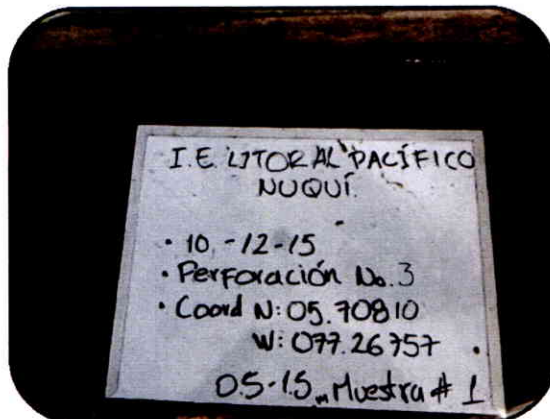 I.E. LITORAL PACÍFICO
NUQUÍ.
• 10,-12-15
• Perforación No.3
• Coord N: 05.70810
W: 077.26757
0.5-1.5 m Muestra # 1